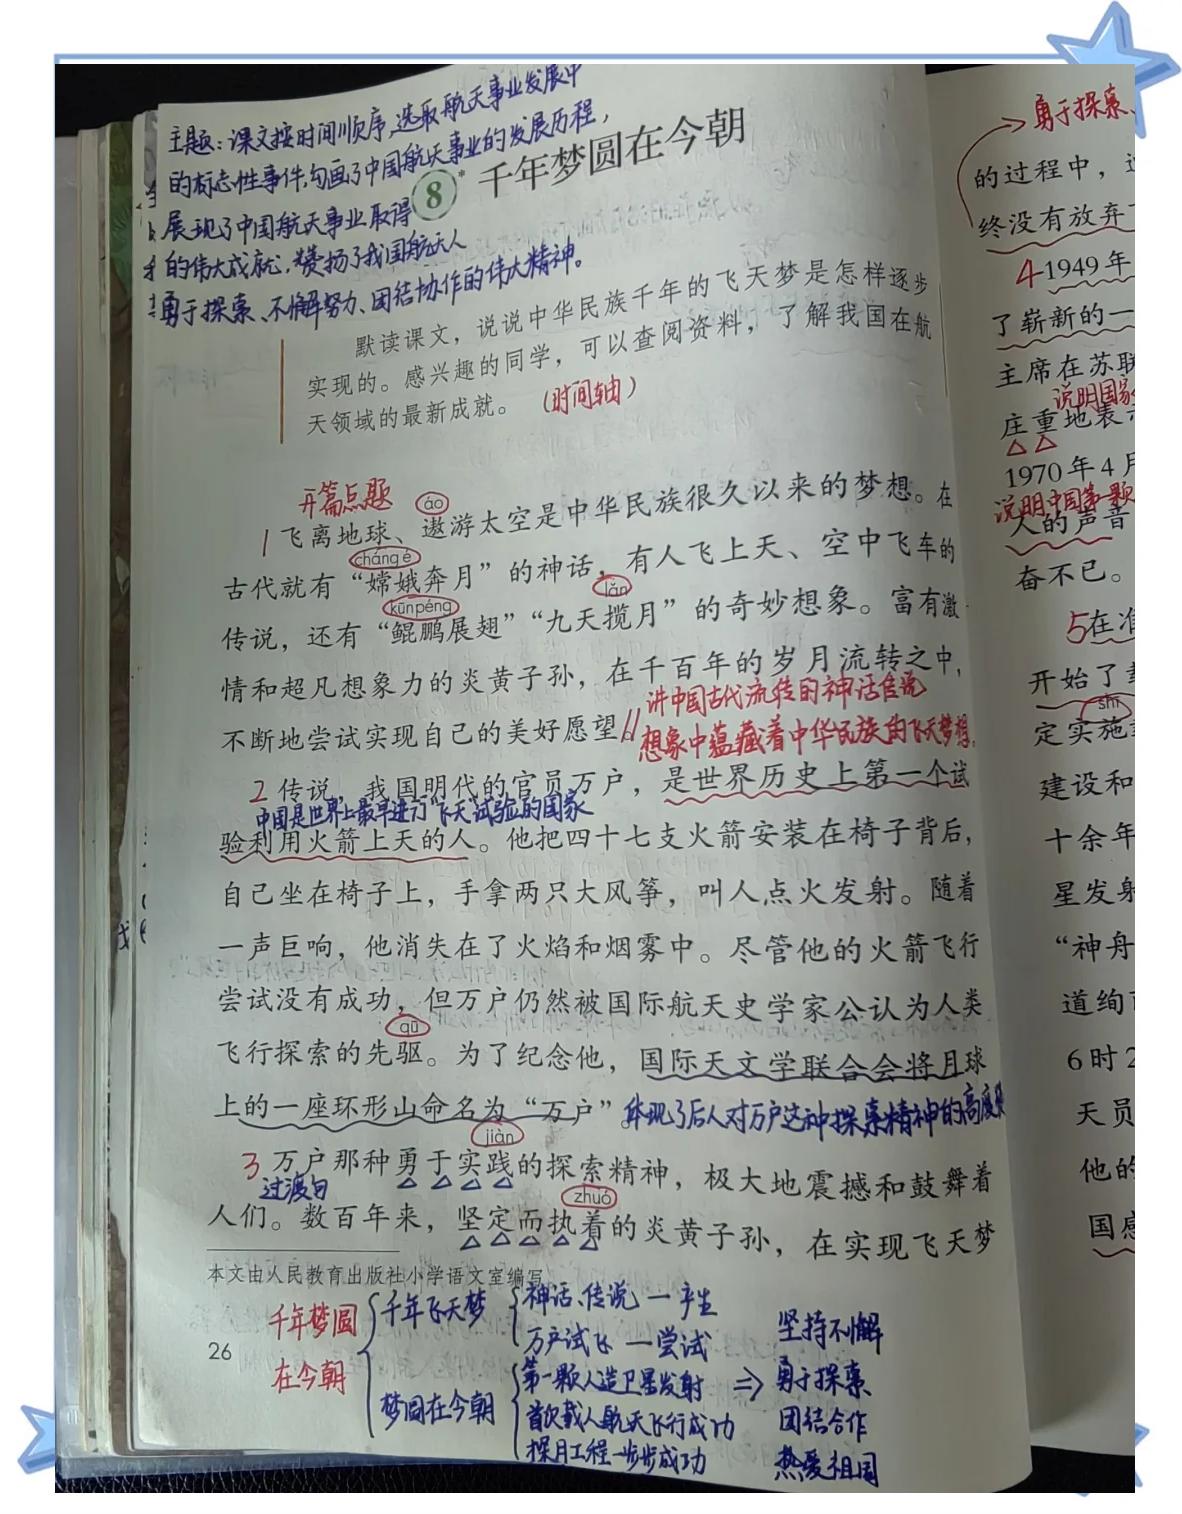 主题：课文按时间顺序，选取航天事业发展中
的标志性事件，勾画了中国航天事业的发展历程，
展现了中国航天事业取得
的伟大成就，赞扬了我国航天人
勇于探索、不懈努力、团结协作的伟大精神。
8* 千年梦圆在今朝
默读课文，说说中华民族千年的飞天梦是怎样逐步
实现的。感兴趣的同学，可以查阅资料，了解我国在航
天领域的最新成就。（时间轴）
开篇点题
áo
1飞离地球、遨游太空是中华民族很久以来的梦想。在
cháng é
古代就有“嫦娥奔月”的神话，有人飞上天、空中飞车的
kūn péng
lǎn
传说，还有“鲲鹏展翅”“九天揽月”的奇妙想象。富有激
情和超凡想象力的炎黄子孙，在千百年的岁月流转之中，
讲中国古代流传的神话传说
不断地尝试实现自己的美好愿望。
想象中蕴藏着中华民族的飞天梦想。
2传说，我国明代的官员万户，是世界历史上第一个试
中国是世界上最早进行“飞天”试验的国家
验利用火箭上天的人。他把四十七支火箭安装在椅子背后，
自己坐在椅子上，手拿两只大风筝，叫人点火发射。随着
一声巨响，他消失在了火焰和烟雾中。尽管他的火箭飞行
尝试没有成功，但万户仍然被国际航天史学家公认为人类
qū
飞行探索的先驱。为了纪念他，国际天文学联合会将月球
上的一座环形山命名为“万户”。体现了后人对万户这种探索精神的高度
jiàn
3万户那种勇于实践的探索精神，极大地震撼和鼓舞着
过渡句
zhuó
人们。数百年来，坚定而执着的炎黄子孙，在实现飞天梦
本文由人民教育出版社小学语文室编写
26
千年梦圆
在今朝
千年飞天梦
神话、传说—产生
万户试飞—尝试
梦圆在今朝
第一颗人造卫星发射
首次载人航天飞行成功
探月工程一步步成功
⇒
坚持不懈
勇于探索
团结合作
热爱祖国
勇于探索、
的过程中，
终没有放弃
4 1949年
了崭新的一
主席在苏联
说明国家
庄重地表
1970年4月
说明中国第一颗
人的声音
奋不已。
5在准
开始了
shī
定实施
建设和
十余年
星发射
“神舟
道绚
6时2
天员
他的
国感